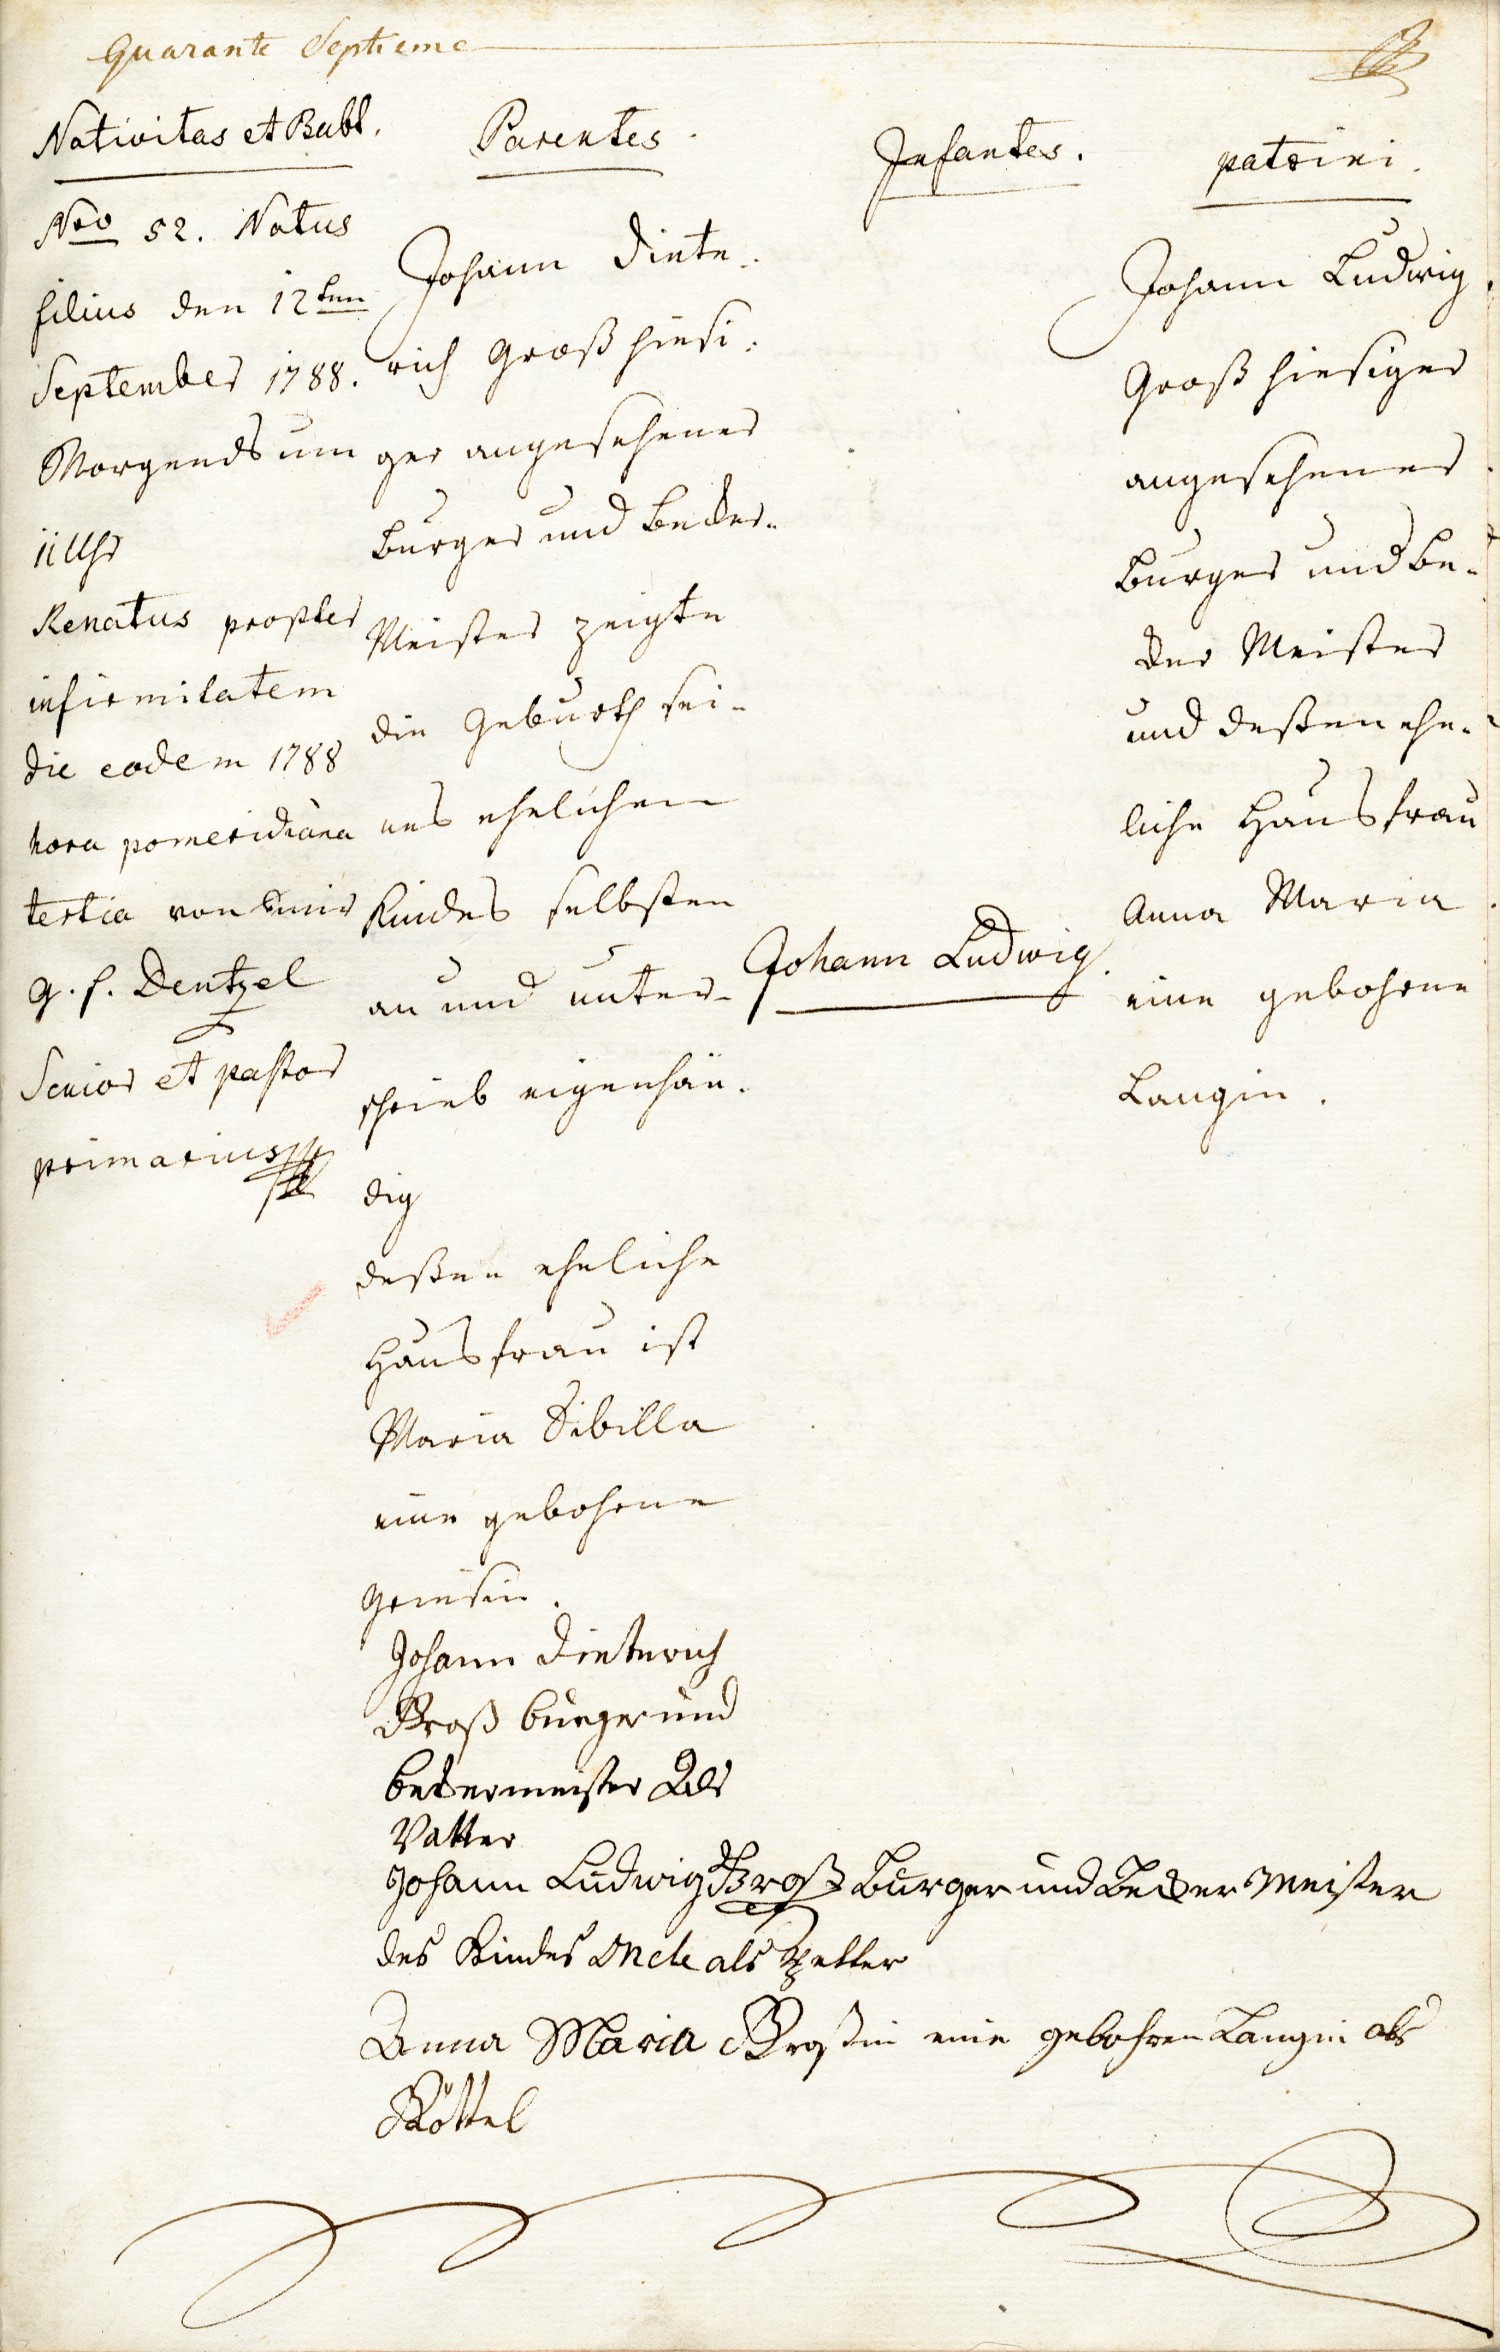 Quarante Septieme
Nativitas et Babt.
No 52. Natus
filius den 12ten
September 1788.
Morgends um
11 Uhr
Renatus propter
infirmitatem
die eodem 1788
hora pomeridiana
tertia von mir
G. f. Dentzel
Senior et pastor
primarius
Parentes.
Johann Diete-
rich Groß hiesi-
ger angesehener
burger und becker-
Meister zeigte
die Geburth sei-
nes ehelichen
Kindes selbsten
an und unter-
schrieb eigenhän-
dig
deßen eheliche
Hausfrau ist
Maria Sibilla
eine gebohrne
Johann Dieterich
Groß burger und
beckermeister Als
Vatter
Johann Ludwig Groß burger und Becker Meister
des Kindes Oncle als Petter
Anna Maria Großin eine gebohren Langin als
Göttel
Infantes.
Johann Ludwig
patrini.
Johann Ludwig
Groß hiesiger
angesehener
burger und be-
cker Meister
und deßen ehe-
liche Hausfrau
Anna Maria
eine gebohrne
Langin.